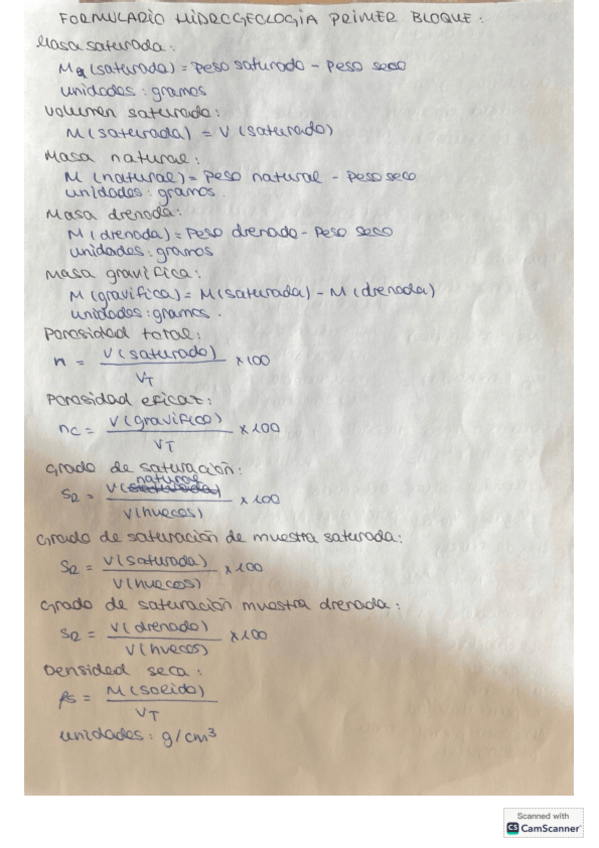 FORMULARIO HIDROGEOLOGIA PRIMER BLOQUE:
Masa saturada:
Ma (saturada) = Peso saturado - Peso seco
unidades: gramos
Volumen saturado:
M (saturada) = V (saturado)
Masa natural:
M (natural) = Peso natural - Peso seco
unidades: gramos.
Masa drenada:
M (drenada) = Peso drenado - Peso seco
unidades: gramos
Masa gravifica:
M (gravifica) = M (saturada) - M (drenada)
unidades: gramos.
Porosidad total:
n = V (saturado) / VT x 100
Porosidad eficaz:
nc = V (gravifico) / VT x 100
Grado de saturación:
SR = V (natural) / V (huecos) x 100
Grado de saturación de muestra saturada:
SR = V (saturada) / V (huecos) x 100
Grado de saturación muestra drenada:
SR = V (drenado) / V (huecos) x 100
Densidad seca:
ρs = M (solido) / VT
unidades: g/cm³
Scanned with
CS CamScanner